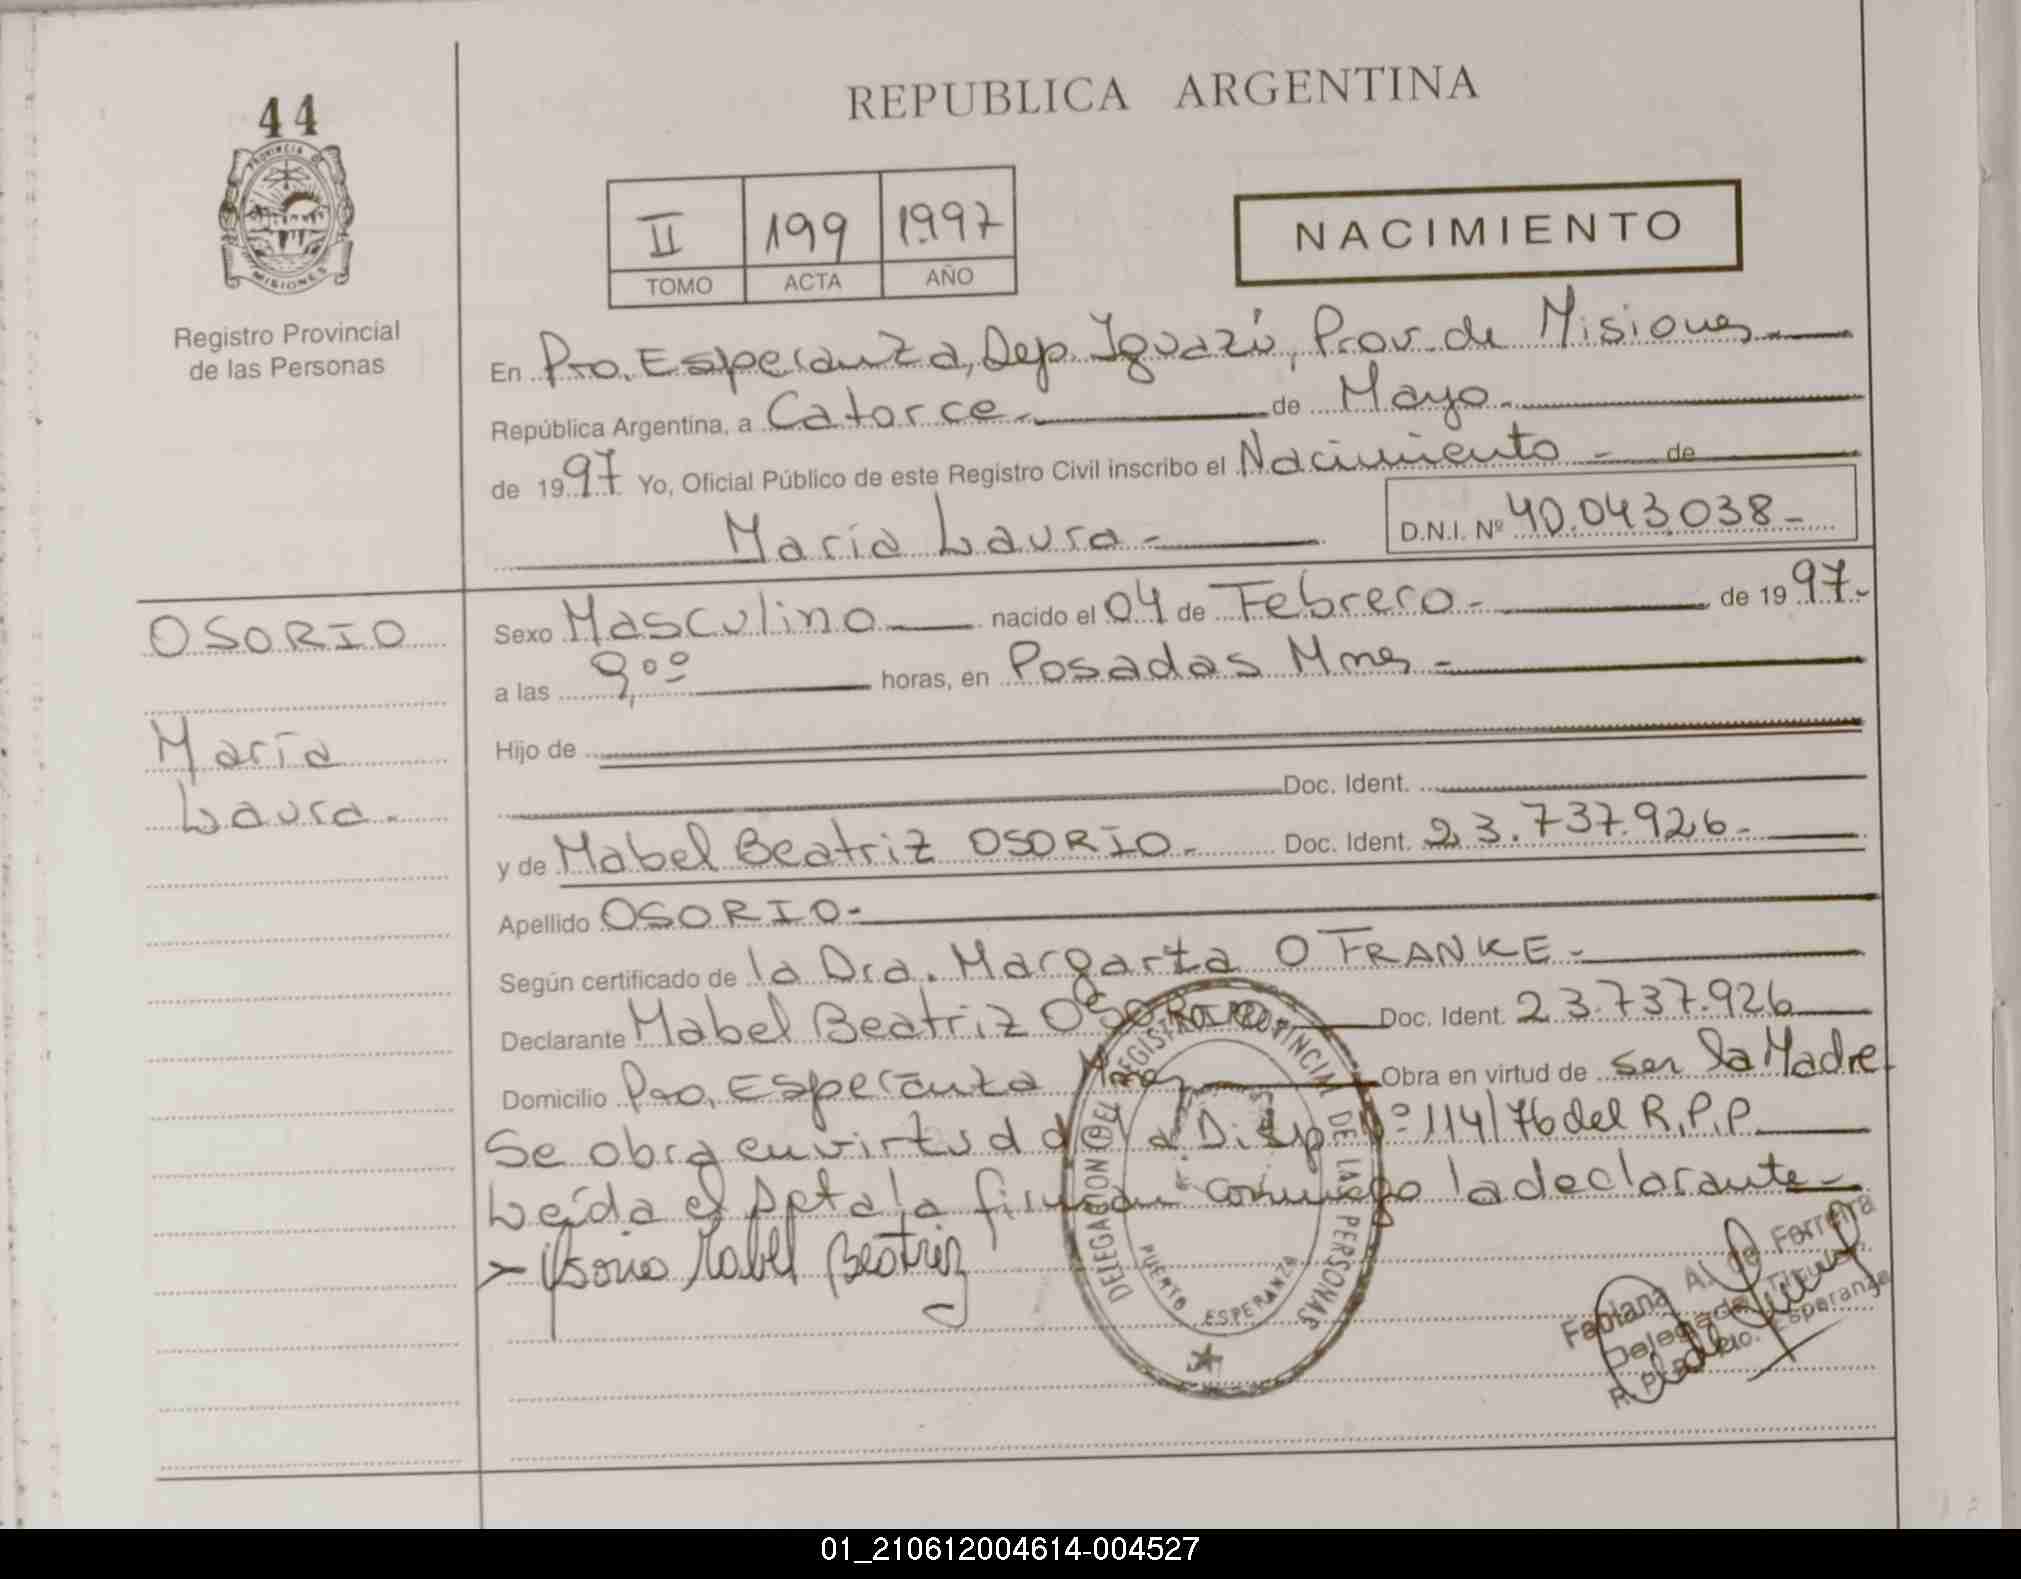 44
PROVINCIA DE
MISIONES
Registro Provincial
de las Personas
REPUBLICA ARGENTINA
II 199 1.997
TOMO ACTA AÑO
NACIMIENTO
En Pto. Esperanza, Dep. Iguazú, Prov. de Misiones.
República Argentina, a Catorce.- de Mayo.
de 1997 Yo, Oficial Público de este Registro Civil inscribo el Nacimiento - de
María Laura.-
D.N.I. Nº 40.043.038-
OSORIO
María
Laura.-
Sexo Masculino nacido el 04 de Febrero.- de 1997.-
a las 9,ºº horas, en Posadas Mnes -
Hijo de
Doc. Ident.
y de Mabel Beatriz OSORIO.- Doc. Ident. 23.737.926.-
Apellido OSORIO-
Según certificado de la Dra. Margarta O FRANKE-
Declarante Mabel Beatriz OSORIO Doc. Ident. 23.737.926
Domicilio Pto. Esperanza Mnes Obra en virtud de ser la Madre
Se obra en virtud de la Disp Nº 114/76 del R.P.P.
Leída el Acta la firman conmigo la declarante-
Osorio Mabel Beatriz
DELEGACION DEL REGISTRO PROVINCIAL DE LAS PERSONAS
PUERTO ESPERANZA
Fabiana A. de Ferreira
Delegada Titular
R. P. P. Pto. Esperanza
01_210612004614-004527